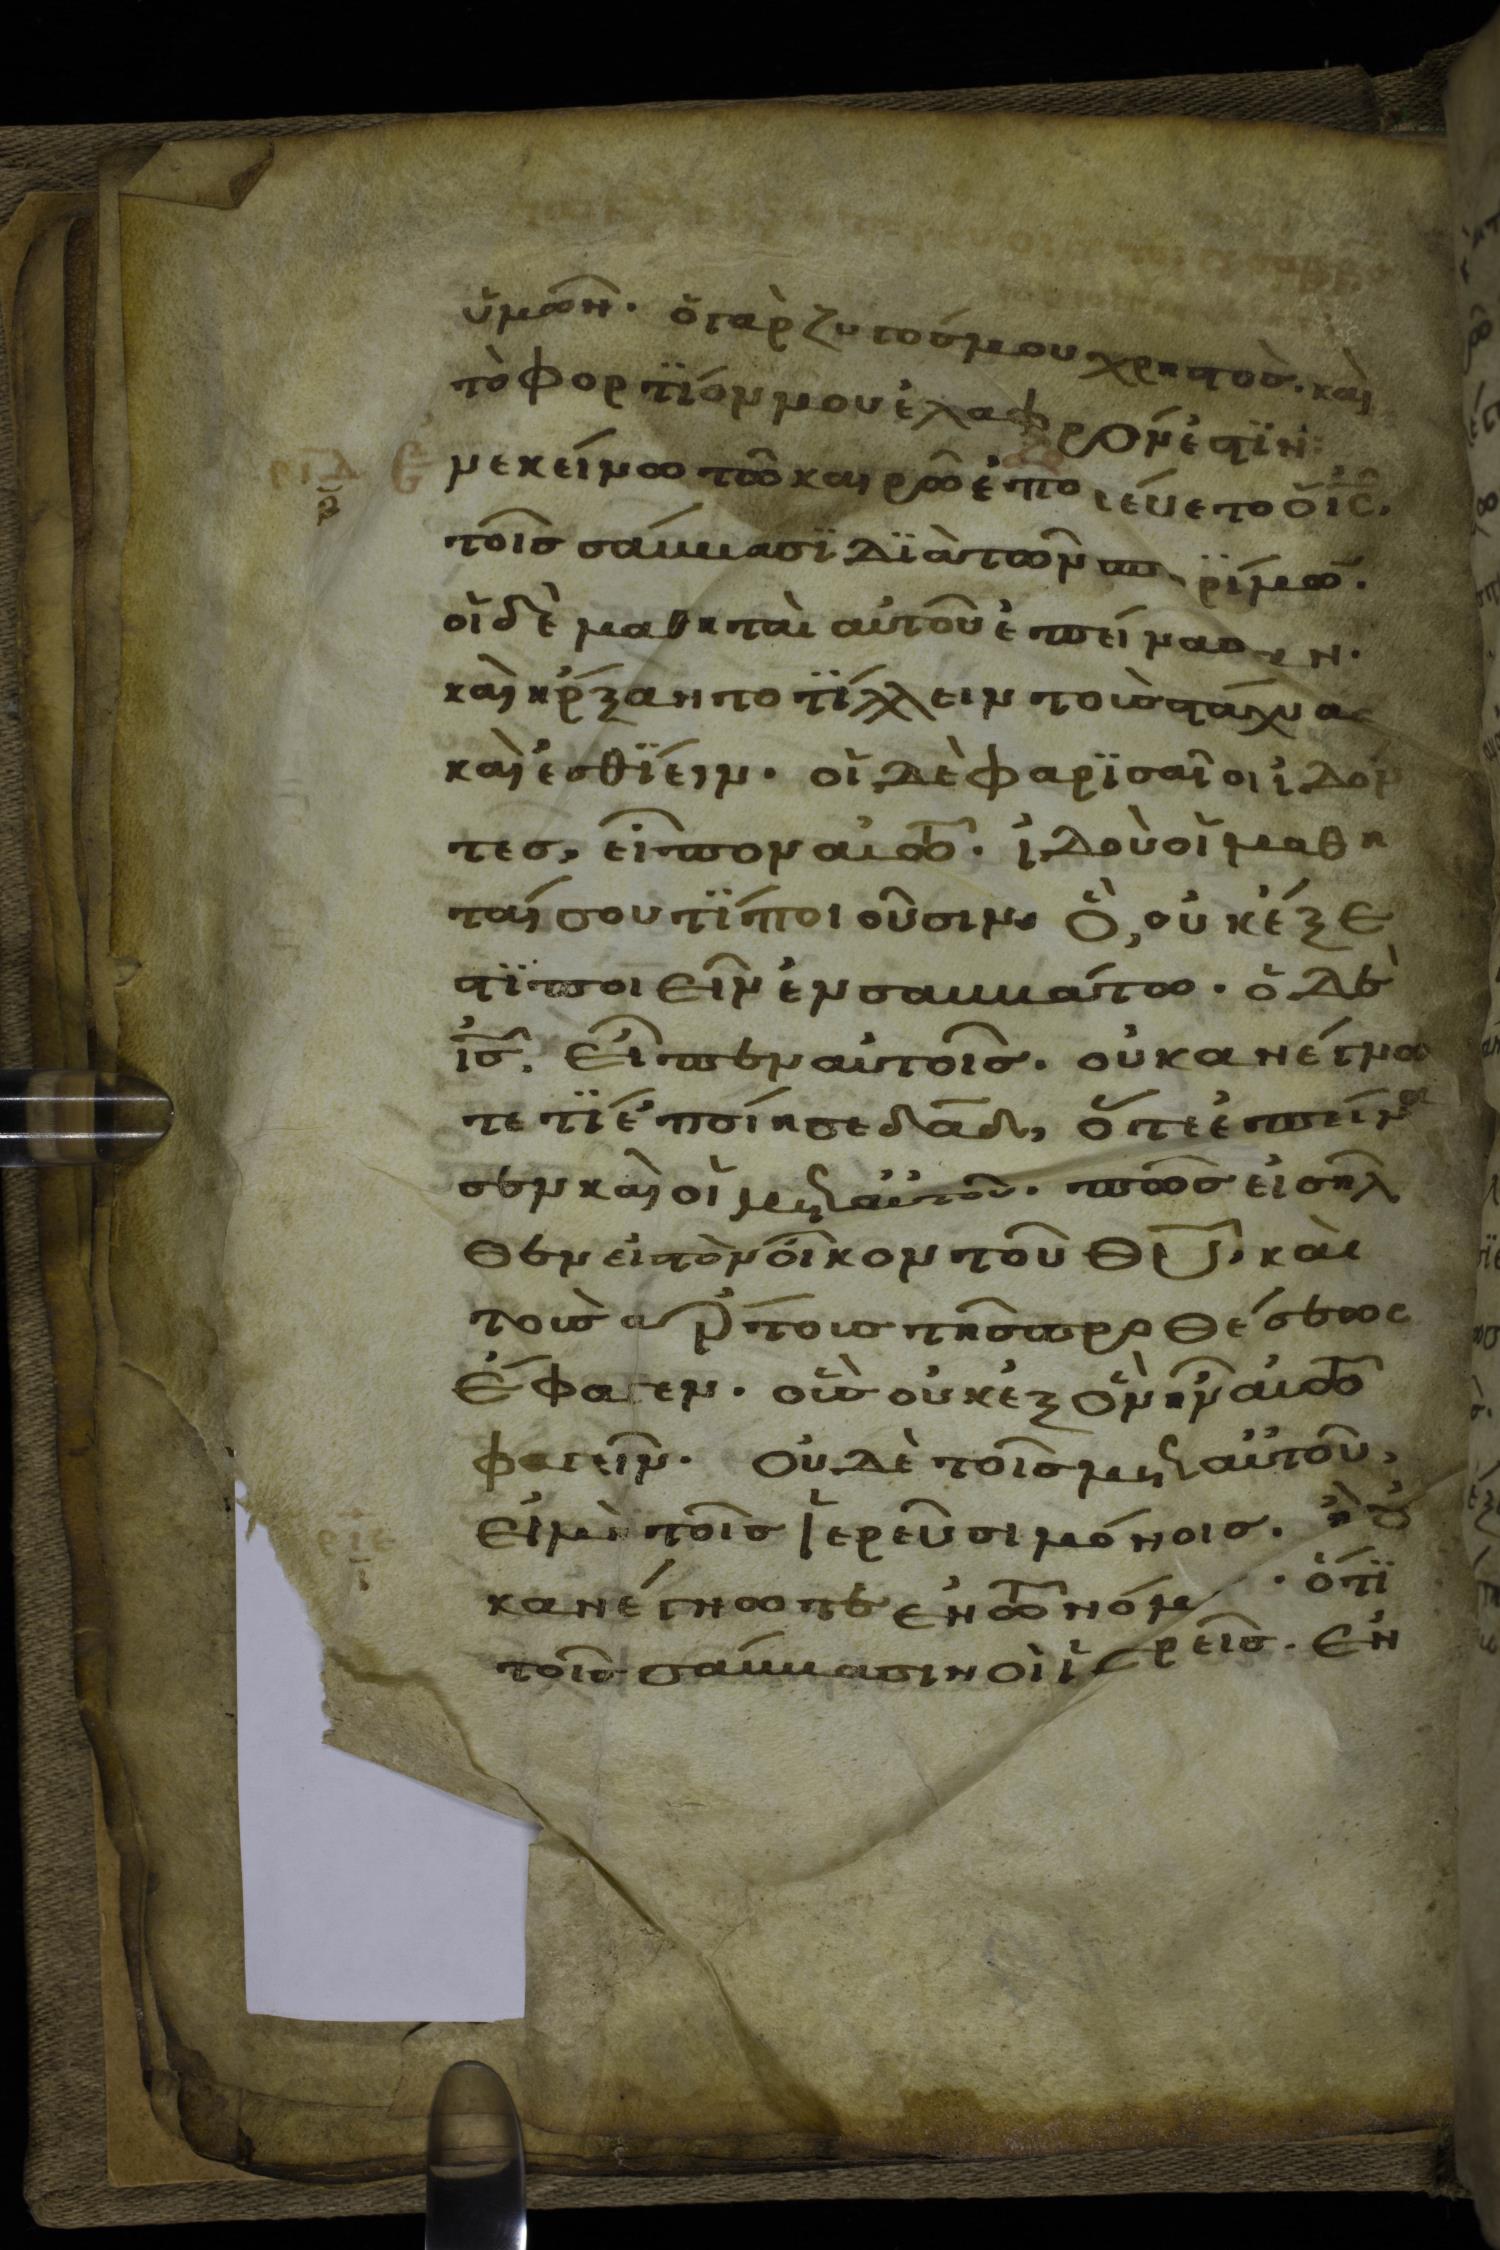 ὑμῶν. ὁ γὰρ ζυγόσ μου χρηστὸσ. καὶ
τὸ φορτίον μου ἐλαφρόν ἐστιν:
ριδ Ἐ
β
μ ἐκείνω τῶ καιρῶ ἐπορεύετο ὁ ι̅ς̅.
τοῖσ σάββασι διὰ τῶν σπορίμω̅.
οἱ δὲ μαθηταὶ αὐτοῦ ἐπείνασαν.
καὶ ἤρξαντο τίλλειν τοὺσ στάχυας
καὶ ἐσθίειν. οἱ δὲ φαρισαῖοι ἰδόν
τεσ, εἶπον αὐτῶ. ἰδοὺ οἱ μαθη
ταί σου τί ποιοῦσιν. ὃ, οὐκ ἔξε
στι ποιεῖν ἐν σαββάτω. ὁ δὲ
ι̅σ̅. εἶπεν αὐτοῖσ. οὐκ ἀνέγνω
τε τί ἐποίησε δα̅δ̅, ὅτε ἐπείνα
σεν καὶ οἱ μετ αὐτοῦ. πῶσ εἰσῆλ
θεν εἰσ τὸν οἶκον τοῦ θ̅υ̅, καὶ
τοὺσ ἄρτουσ τῆσ προθέσεως
ἔφαγεν. οὓσ οὐκ ἐξὸν ἦν αὐτῶ
φαγεῖν. οὐδὲ τοῖσ μετ αὐτοῦ,
ριε
ι
εἰ μὴ τοῖσ ἱερεῦσι μόνοισ. ἢ οὐ
κ ἀνέγνωτε ἐν τῶ νόμω. ὅτι
τοῖσ σάββασιν οἱ ἱερεῖσ. ἐν